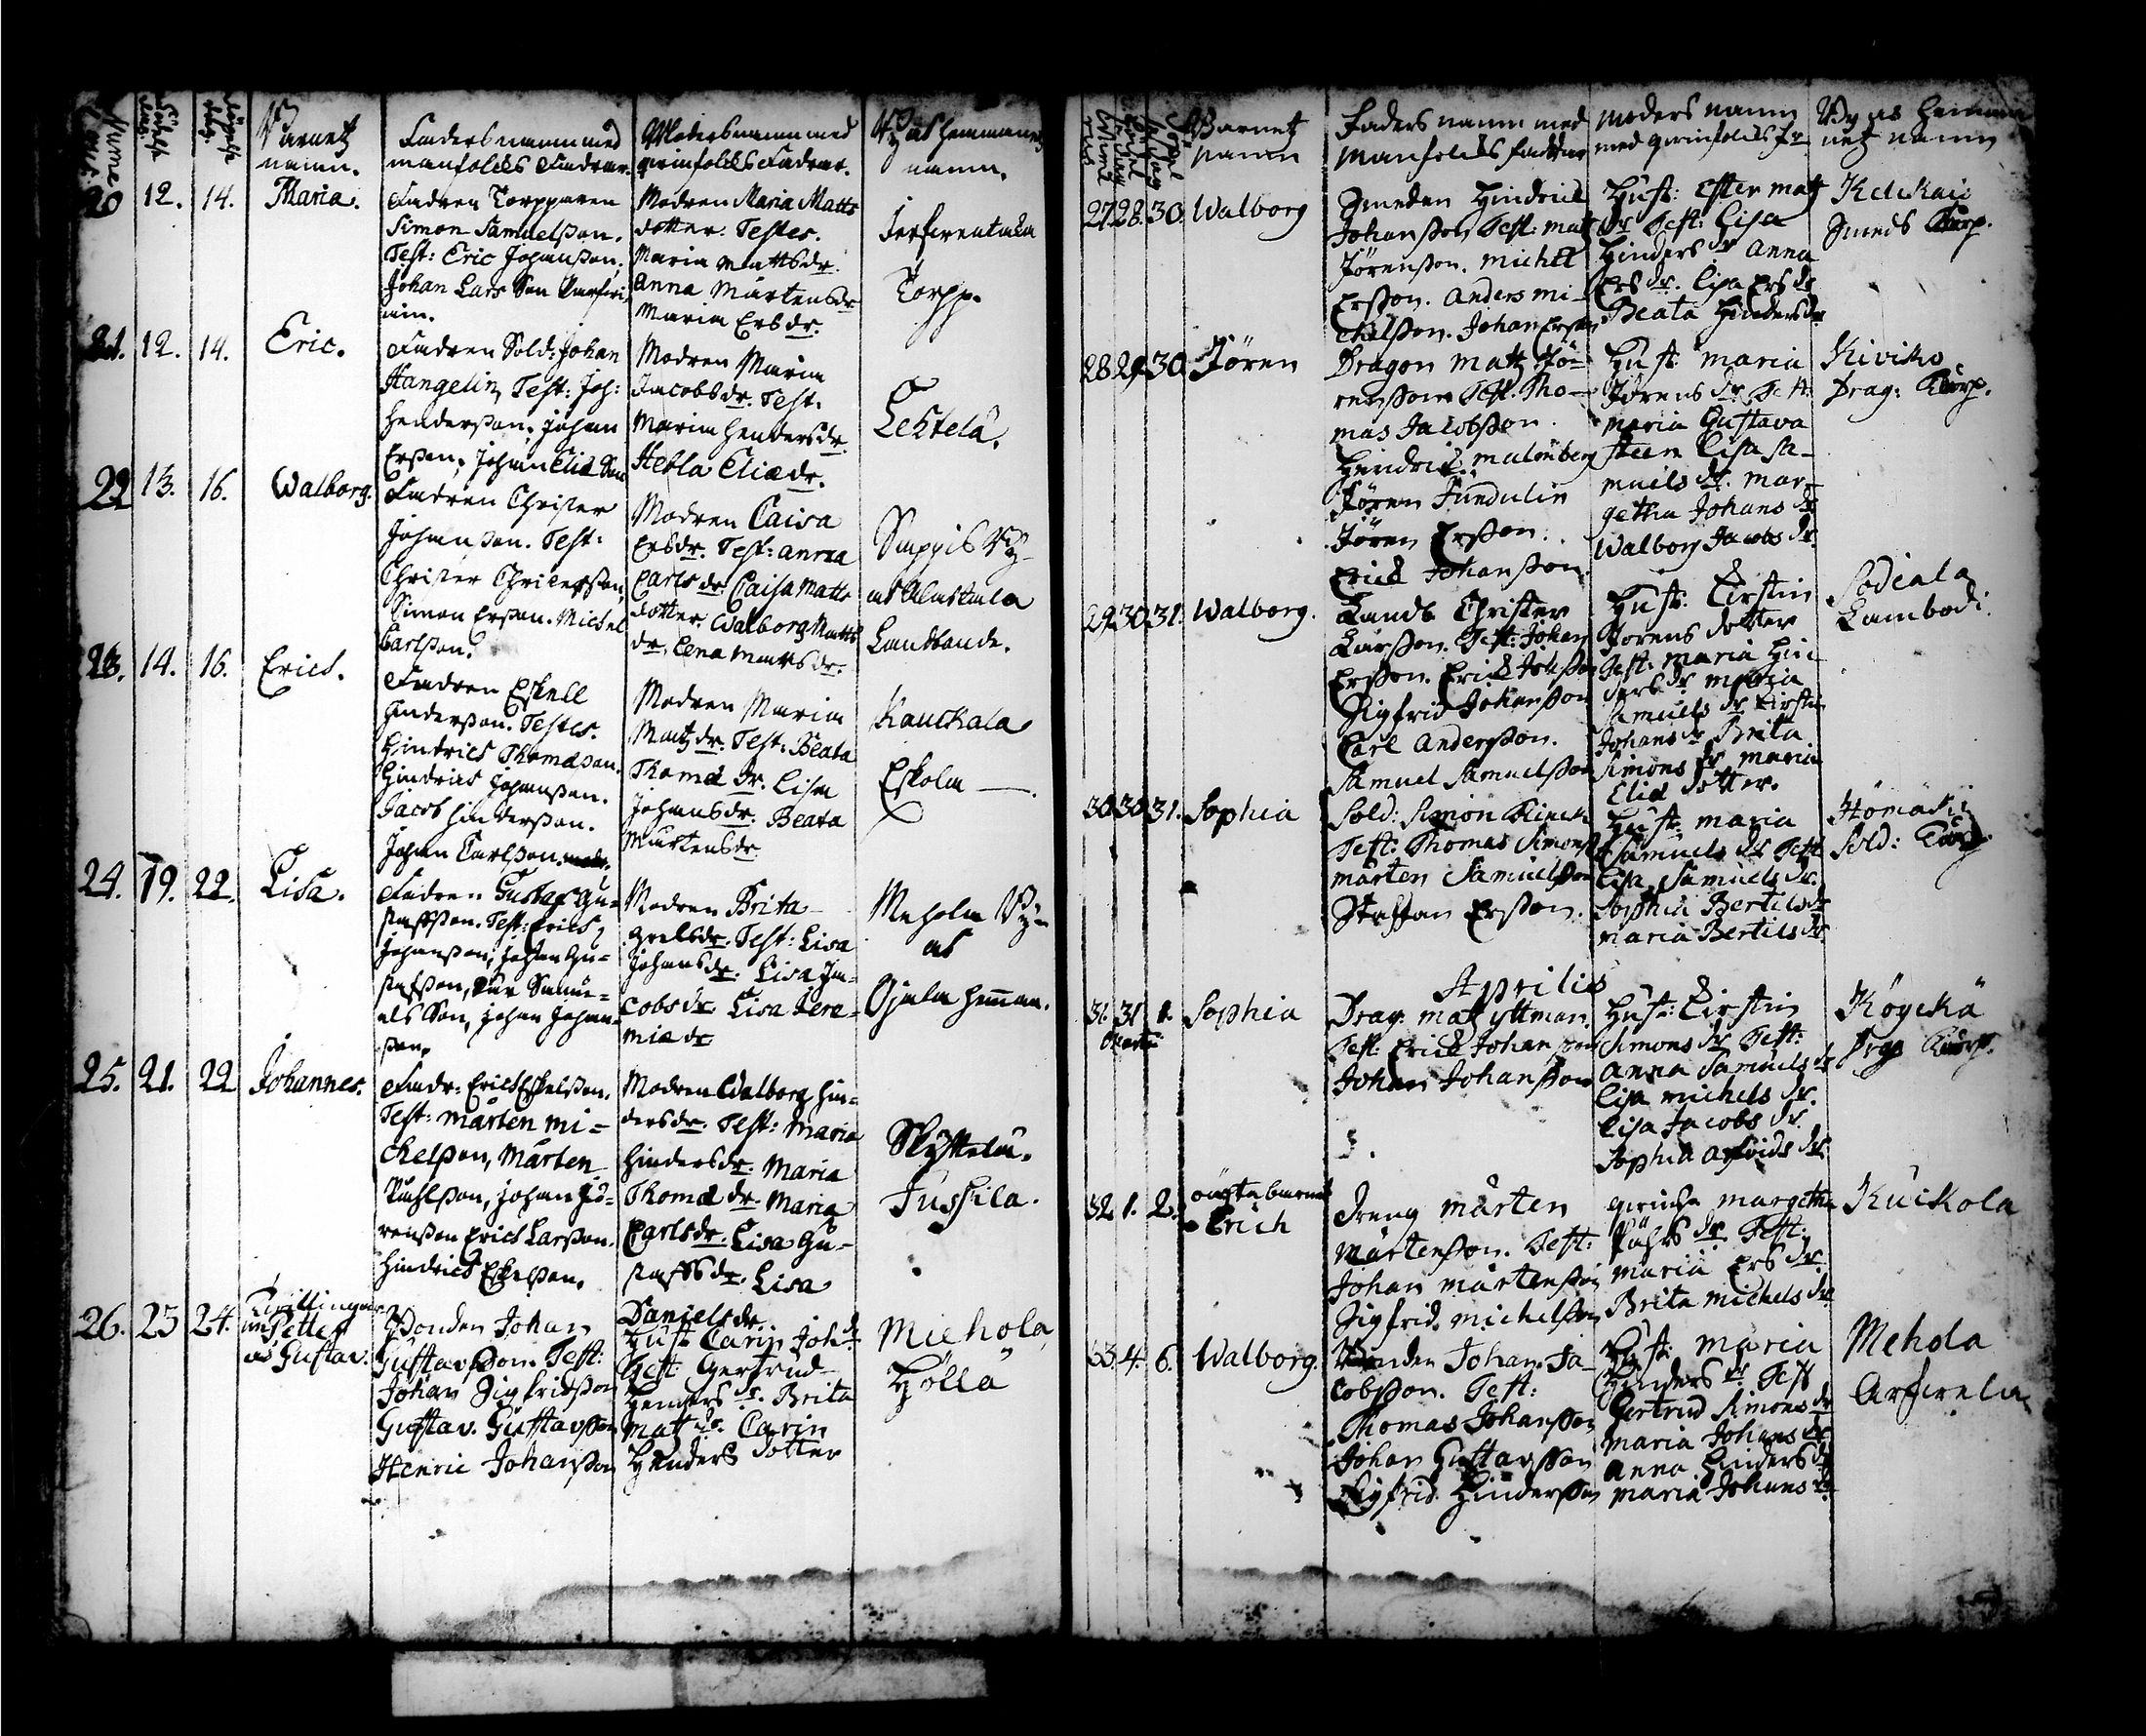 Barnetz
namn.
Fadersnamn med
manfolcks Fadrar.
Modersnamn med
qvinfolcks Fadrar.
By ȧs hemmanetz
namn.
20 12. 14. Maria.
Fadren Torpparen
Simon Samuelsson.
Test: Eric Johansson,
Johan Lars Son
Modren Maria Matts
dotter. Testes.
Maria Mattsdr.
Anna Mårtensdr
Maria Ersdr.
Torpp.
21. 12. 14. Eric.
Fadren Sold: Johan
Hangelin, Test: Joh:
Hendersson, Johan
Ersson, Johan Eliæ Son
Modren Maria
Jacobsdr. Test.
Maria Hendersdr.
Hebla Eliædr.
Lehtelä.
22 13. 16. Walborg.
Fadren Christer
Johansson. Test:
Christer Christersson,
Simon Ersson. Michel
Carlsson.
Modren Caisa
Ersdr. Test: Anna
Carls dr. Caisa Matts
dotter. Walborg Matts
dr. Lena Matts dr.
Landbonde.
23. 14. 16. Erich.
Fadren Eskell
Andersson. Testes.
Hindrich Thomæson.
Hindrich Johansson.
Jacob Hindersson.
Johan Carlsson.
Modren Maria
Matz dr. Test: Beata
Thomæ dr. Lisa
Johansdr. Beata
Mårtensdr
Kauskala
Eskola
24. 19. 22. Lisa.
Fadren Gustaf Gu-
staffsson. Test: Erich
Johansson, Johan Gu-
stafsson, Samu-
els Son, Johan Johan-
sson.
Modren Brita
dr. Test: Lisa
Johansdr. Lisa Ja-
cobs dr Lisa Jere-
miæ dr
Mehola By
Ojala heman.
25. 21. 22 Johannes.
Fadr: Erich Eskelsson.
Test: Mårten Mi-
chelsson, Mårten
Påhlsson, Johan Jö-
rensson Erich Larsson.
Hindrich Eskelsson.
Modren Walborg Hin-
dersdr. Test: Maria
Hindersdr. Maria
Thomæ dr. Maria
Carlsdr. Lisa Gu-
staffs dr. Lisa
Danielsdr.
Skyttelä.
Jussila.
26. 23 24. Tvillingar
Petter
Gustav.
Bonden Johan
Gustavsson. Test:
Johan Sigfridsson
Gustav. Gustavsson
Henric Johansson
Hust. Carin Joh. d
Test. Gertrud
Henders dr. Brita
Mat dr. Carin
Henders dotter
Miehola
Hölla
Barnetz
Namn
Faders namn med
Manfolcks fadrar
Moders namn
med qvinfolcks
By ȧs hemma
netz namn
27. 28. 30. Walborg
Smeden Hindrich
Johansson Test: Matz
Jörensson. Michel
Ersson. Anders Mi-
chelsson. Johan Ersson
Hust: Ester Matz
dr Test: Lisa
Hinders dr Anna
Ers dr. Lisa Ers dr
Beata Hindersdr
Smeds Torp.
28 29. 30. Jören
Dragon Matz Jö-
rensson Test. Tho-
mas Jacobsson.
Hindrich Malmberg
Jören Fundulin
Jören Ersson.
Erich Johansson.
Hust: Maria
Jörens dr Test:
Maria Gustava
Steen Lisa Sa-
muels dr. Mar-
getha Johans dr
Walborg Jacobs dr.
Kiviko
Drag: Torp.
29. 30. 31. Walborg.
Landb. Christer
Larsson. Test: Johan
Ersson. Erich Johsson
Sigfrid Johansson
Carl Andersson.
Samuel Samuelsson
Hust: Kirstin
Jörens dotter
Test: Maria Hin
ders dr Maria
Samuels dr Kirstin
Johans dr Brita
Simons dr Maria
Eliæ dotter.
30. 30. 31. Sophia
Sold: Simon
Test: Thomas Simons
Mårten Samuelsson
Staffan Ersson.
Hust: Maria
Samuels dr Test
Lisa Samuels dr.
Sophia Bertils dr
Maria Bertils dr
Sold: Torp.
Aprilis
31. 31 1. Sophia
Martii
Drag. Matz Yttman.
Test: Erich Johansson
Johan Johansson
Hust: Kirstin
Simons dr Test:
Anna Samuels dr
Lisa Michels dr.
Lisa Jacobs dr.
Sophia Arfvids dr.
Köyckä
Drag Torp.
32. 1. 2. oäckta barnet
Erich
Dreng Mårten
Mårtensson. Test:
Johan Mårtensson
Sigfrid. Michelsson
Margetha
Påhls dr Test:
Maria Ers dr
Brita Michels dr
Kuickola
33. 4. 6. Walborg.
Bonden Johan Ja-
cobsson. Test:
Thomas Johansson
Johan Gustavsson
Sigfrid. Hindersson
Hust: Maria
Hinders dr Test
Gertrud Simons dr
Maria Johans dr
Anna Hinders dr
Maria Johans dr
Mehola